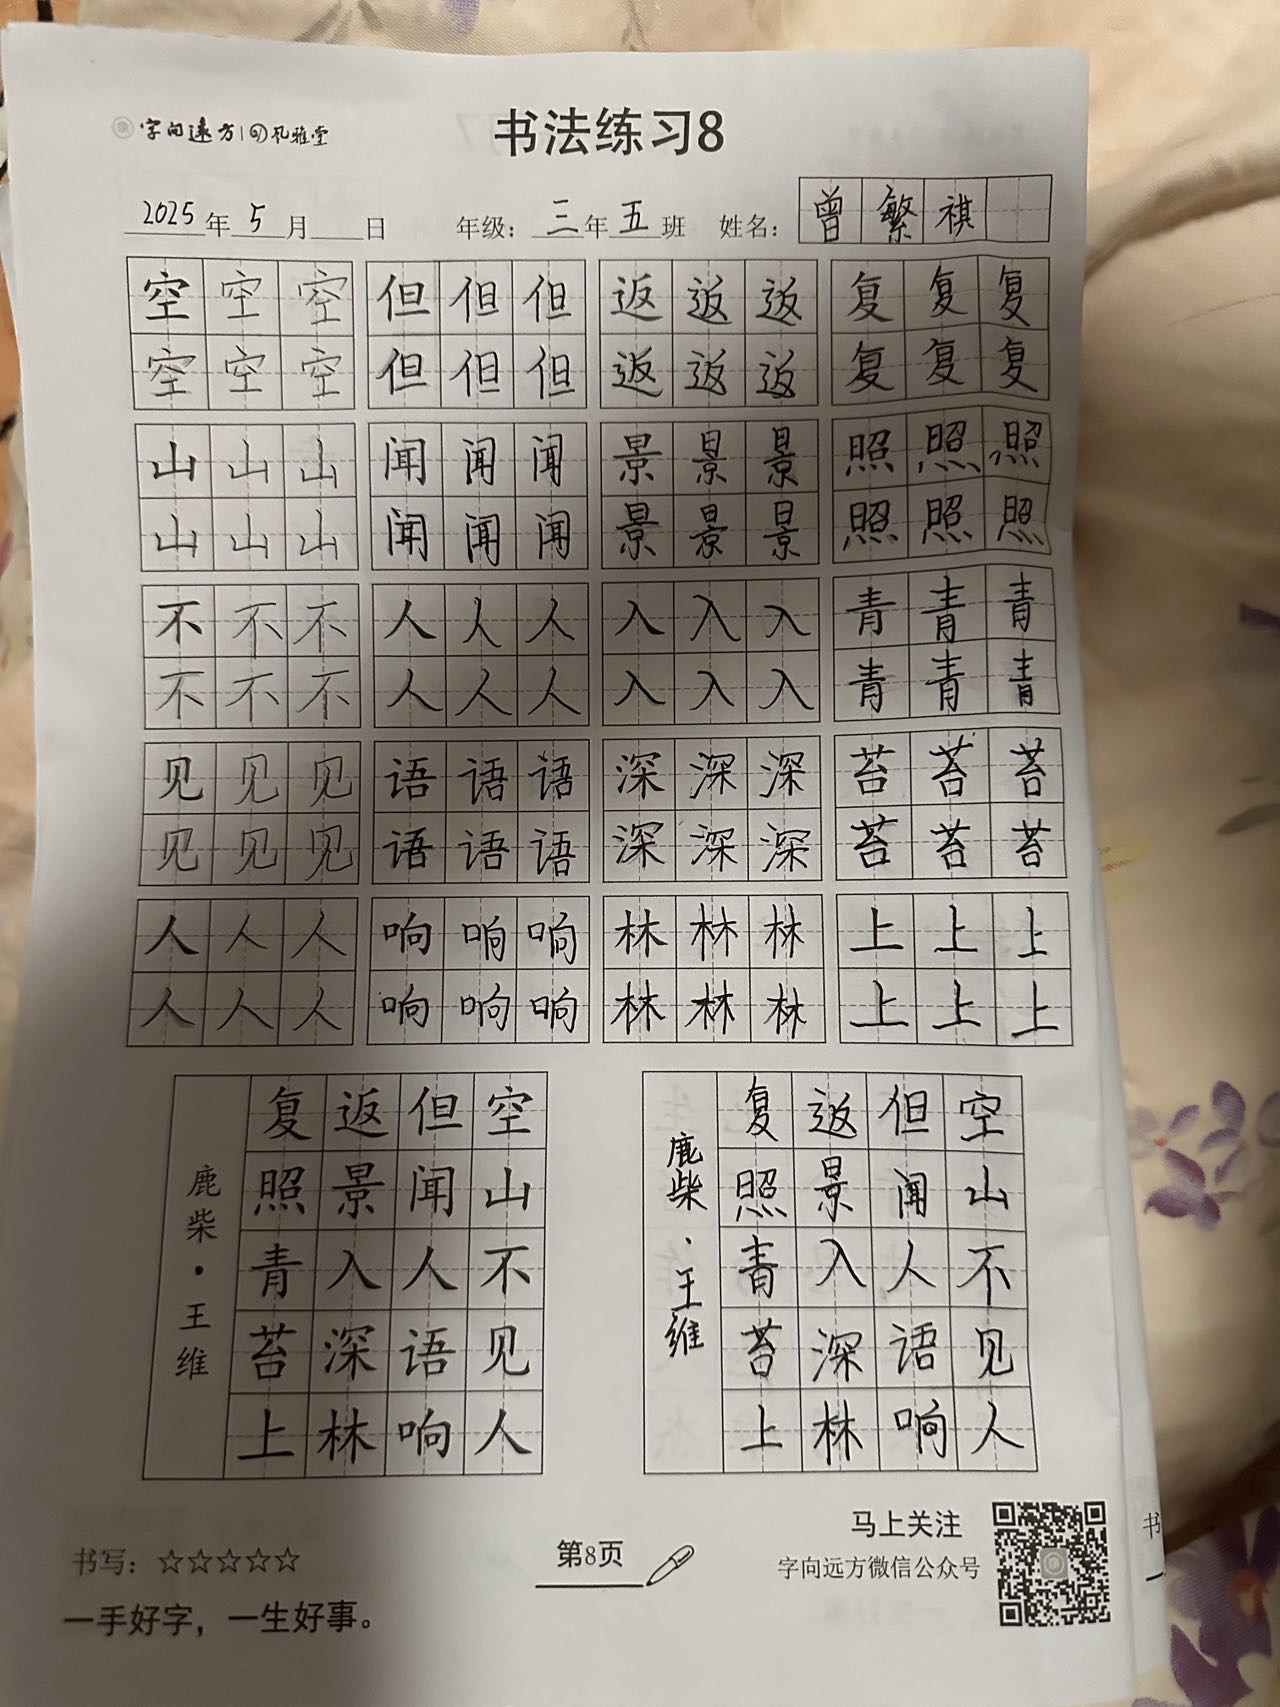 字向远方 孔雅堂
书法练习8
2025年5月 日 年级：三年五班 姓名：曾繁祺
空空空 但但但 返返返 复复复
空空空 但但但 返返返 复复复
山山山 闻闻闻 景景景 照照照
山山山 闻闻闻 景景景 照照照
不不不 人人人 入入入 青青青
不不不 人人人 入入入 青青青
见见见 语语语 深深深 苔苔苔
见见见 语语语 深深深 苔苔苔
人人人 响响响 林林林 上上上
人人人 响响响 林林林 上上上
空山不见人
但闻人语响
返景入深林
复照青苔上
鹿柴·王维
空山不见人
但闻人语响
返景入深林
复照青苔上
鹿柴·王维
书写：☆☆☆☆☆
一手好字，一生好事。
第8页
马上关注
字向远方微信公众号
书